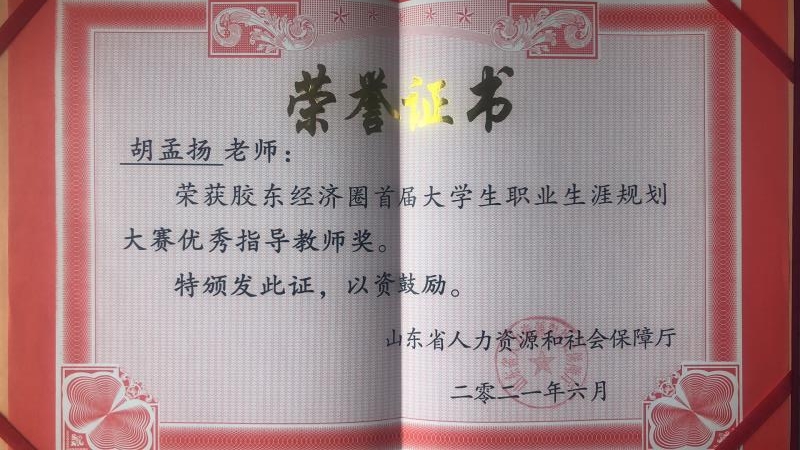 荣誉证书
胡孟扬老师：
荣获胶东经济圈首届大学生职业生涯规划
大赛优秀指导教师奖。
特颁发此证，以资鼓励。
山东省人力资源和社会保障厅
二零二一年六月